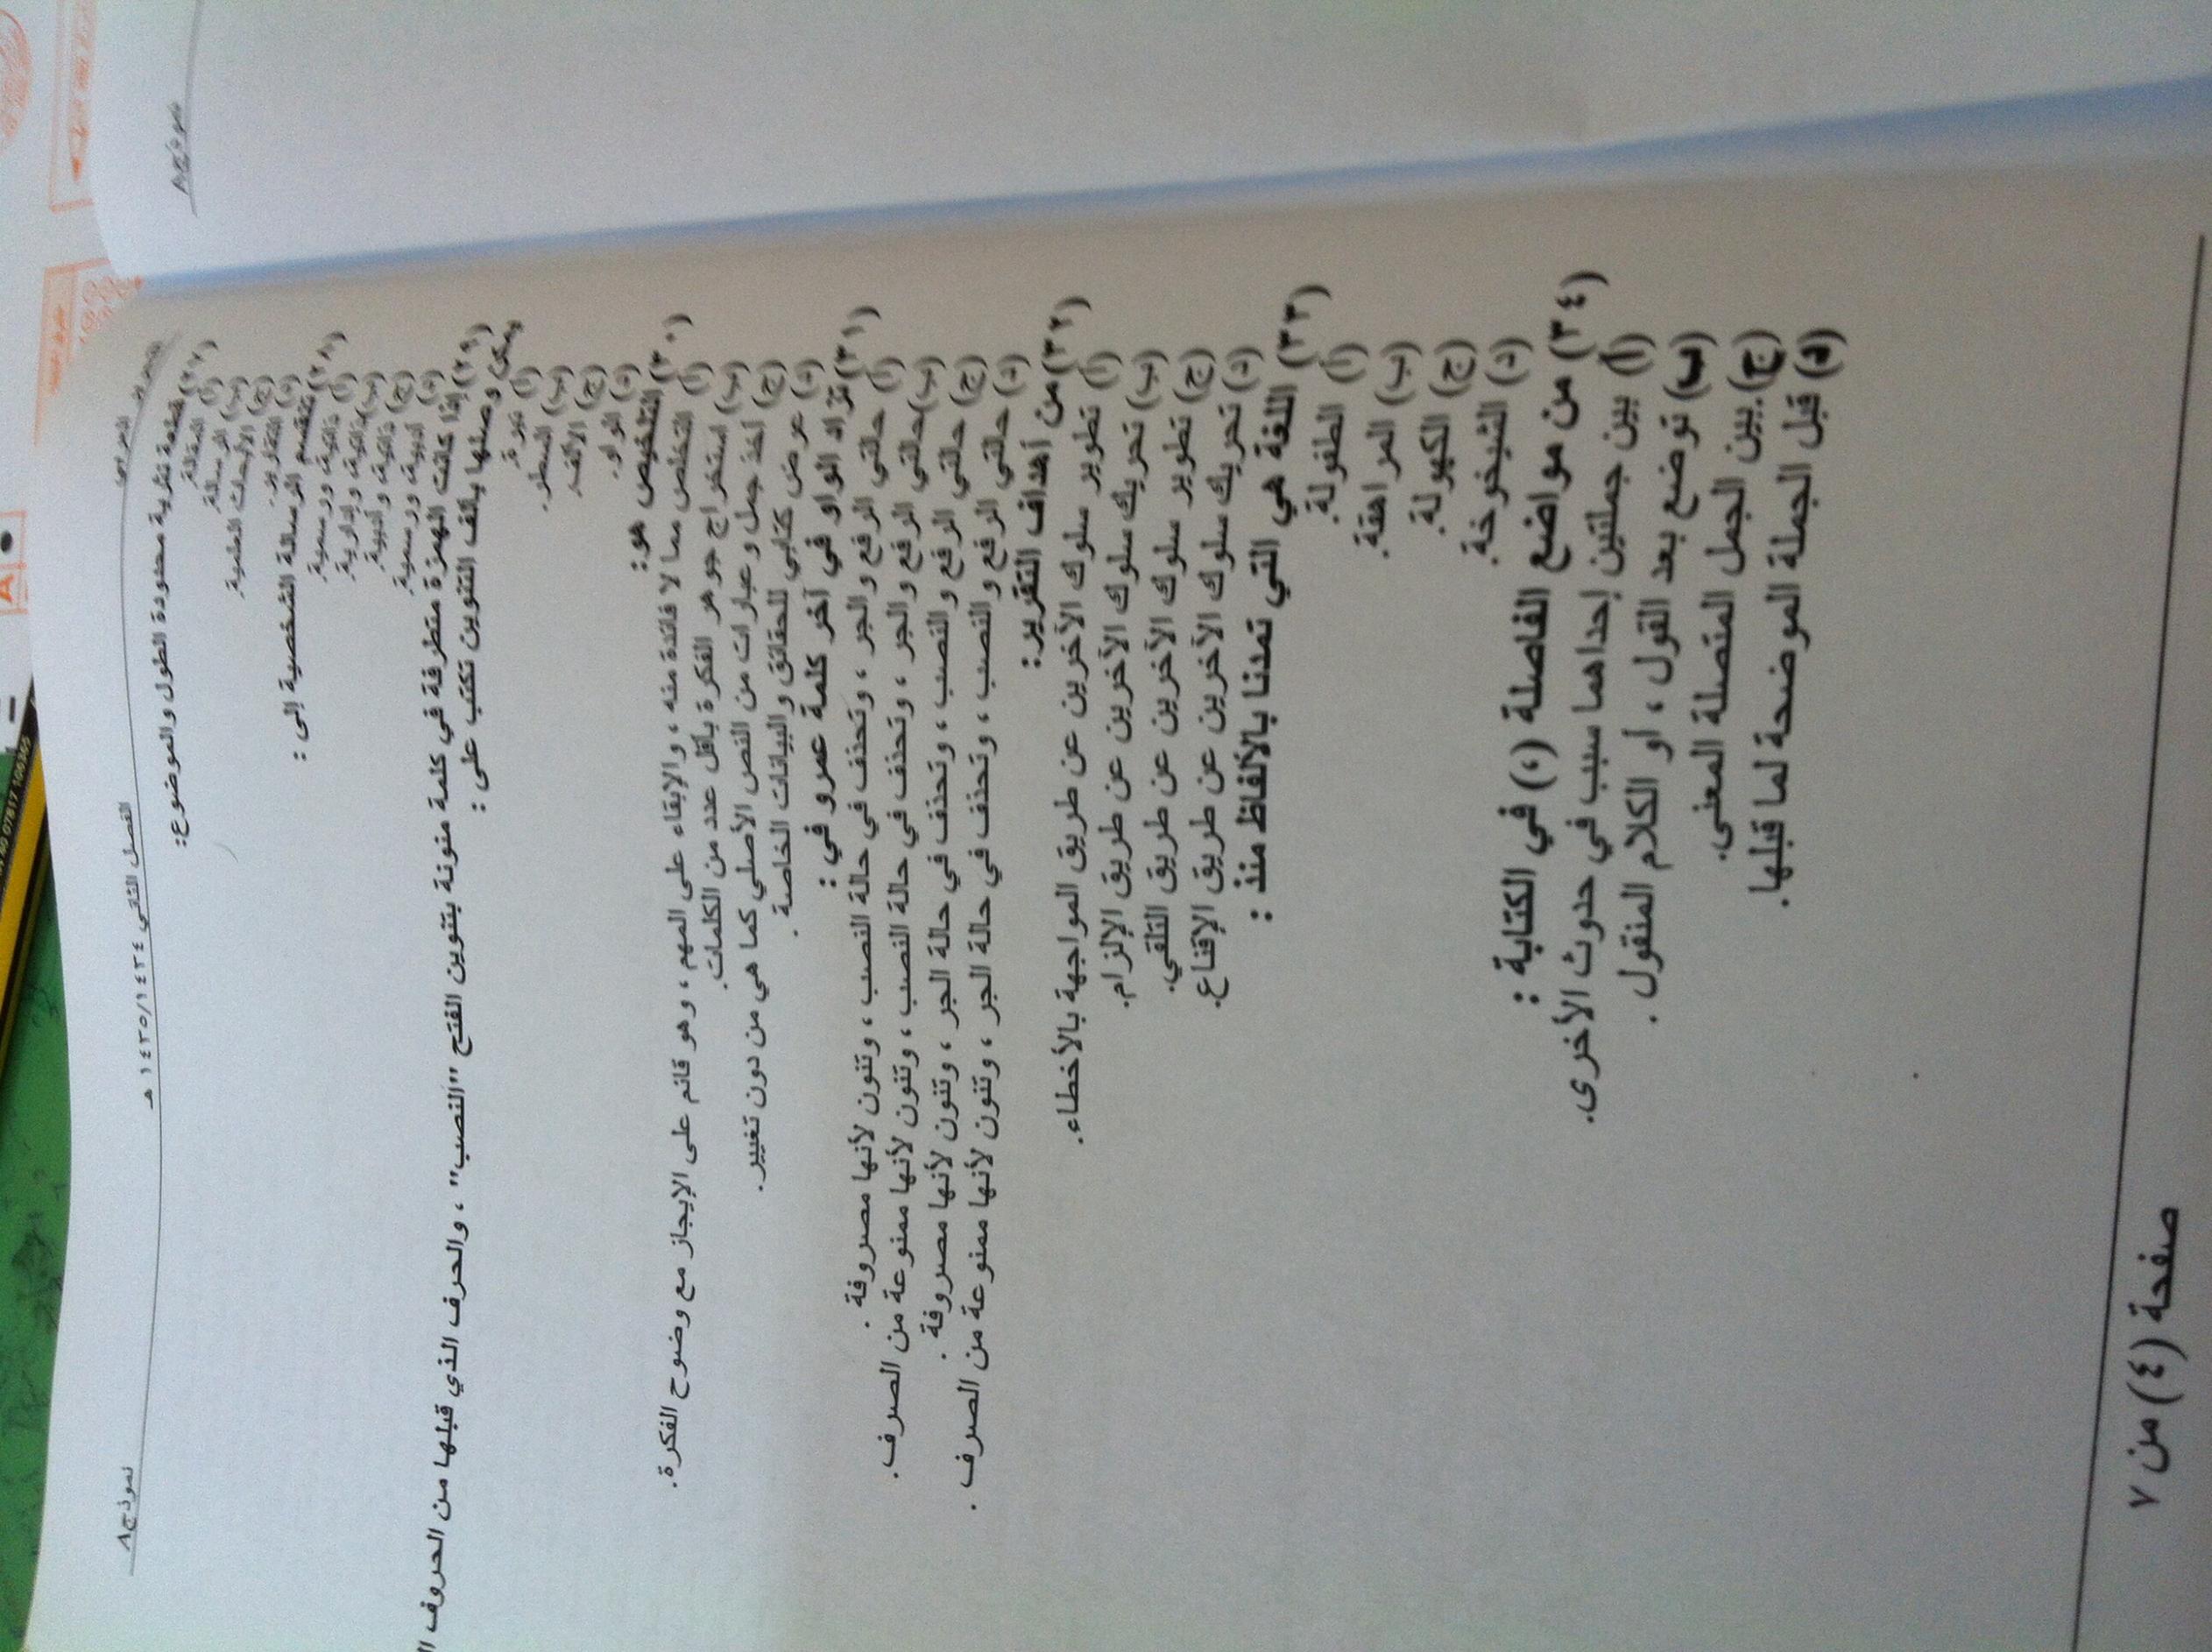 نموذج٨
الفصل الثاني ١٤٣٥/١٤٣٤ هـ
(٢٧) قطعة نثرية محدودة الطول والموضوع:
(أ) المقالة.
(ب) الرسالة.
(ج) الأبحاث العلمية.
(د) التقارير.
(٢٨) تنقسم الرسالة الشخصية إلى :
(أ) ذاتية ورسمية.
(ب) ذاتية وإدارية.
(ج) ذاتية وأدبية.
(د) أدبية ورسمية.
(٢٩) إذا كانت الهمزة متطرفة في كلمة منونة بتنوين الفتح "النصب" ، والحرف الذي قبلها من الحروف
يمكن وصلها بألف التنوين تكتب على :
(أ) نبرة.
(ب) السطر.
(ج) الألف.
(د) الواو.
(٣٠) التلخيص هو:
(أ) التخلص مما لا فائدة منه ، والإبقاء على المهم ، وهو قائم على الإيجاز مع وضوح الفكرة.
(ب) استخراج جوهر الفكرة بأقل عدد من الكلمات.
(ج) أخذ جمل وعبارات من النص الأصلي كما هي من دون تغيير.
(د) عرض كتابي للحقائق والبيانات الخاصة .
(٣١) تزاد الواو في آخر كلمة عمرو في :
(أ) حالتي الرفع والجر ، وتحذف في حالة النصب ، وتنون لأنها مصروفة .
(ب) حالتي الرفع والجر ، وتحذف في حالة النصب ، وتنون لأنها ممنوعة من الصرف.
(ج) حالتي الرفع والنصب ، وتحذف في حالة الجر ، وتنون لأنها مصروفة .
(د) حالتي الرفع والنصب ، وتحذف في حالة الجر ، وتنون لأنها ممنوعة من الصرف .
(٣٢) من أهداف التقرير:
(أ) تطوير سلوك الآخرين عن طريق المواجهة بالأخطاء.
(ب) تحريك سلوك الآخرين عن طريق الإلزام.
(ج) تطوير سلوك الآخرين عن طريق التلقي.
(د) تحريك سلوك الآخرين عن طريق الإقناع.
(٣٣) اللغة هي التي تمدنا بالألفاظ منذ :
(أ) الطفولة.
(ب) المراهقة.
(ج) الكهولة.
(د) الشيخوخة.
(٣٤) من مواضع الفاصلة (،) في الكتابة :
(أ) بين جملتين إحداهما سبب في حدوث الأخرى.
(ب) توضع بعد القول ، أو الكلام المنقول .
(ج) بين الجمل المتصلة المعنى.
(د) قبل الجملة الموضحة لما قبلها.
صفحة (٤) من ٧
نموذج٨